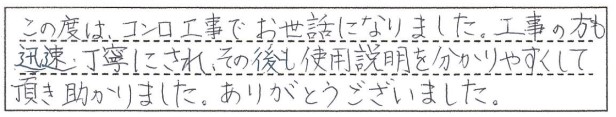 この度は、コンロ工事でお世話になりました。工事の方も
迅速・丁寧にされ、その後も使用説明を分かりやすくして
頂き助かりました。ありがとうございました。